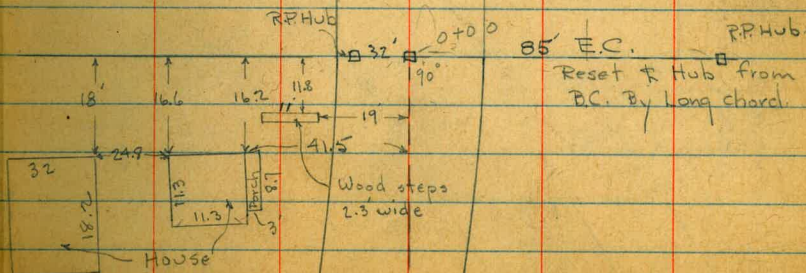 R.P. Hub
0+00
R.P. Hub
32'
85' E.C.
90°
Reset ℞ Hub from
B.C. By Long chord.
18'
16.6
16.2
11.8
11'
19'
24.9
41.5'
32
18.2
11.3
11.3
Porch
8.7
3'
Wood steps
2.3' wide
House